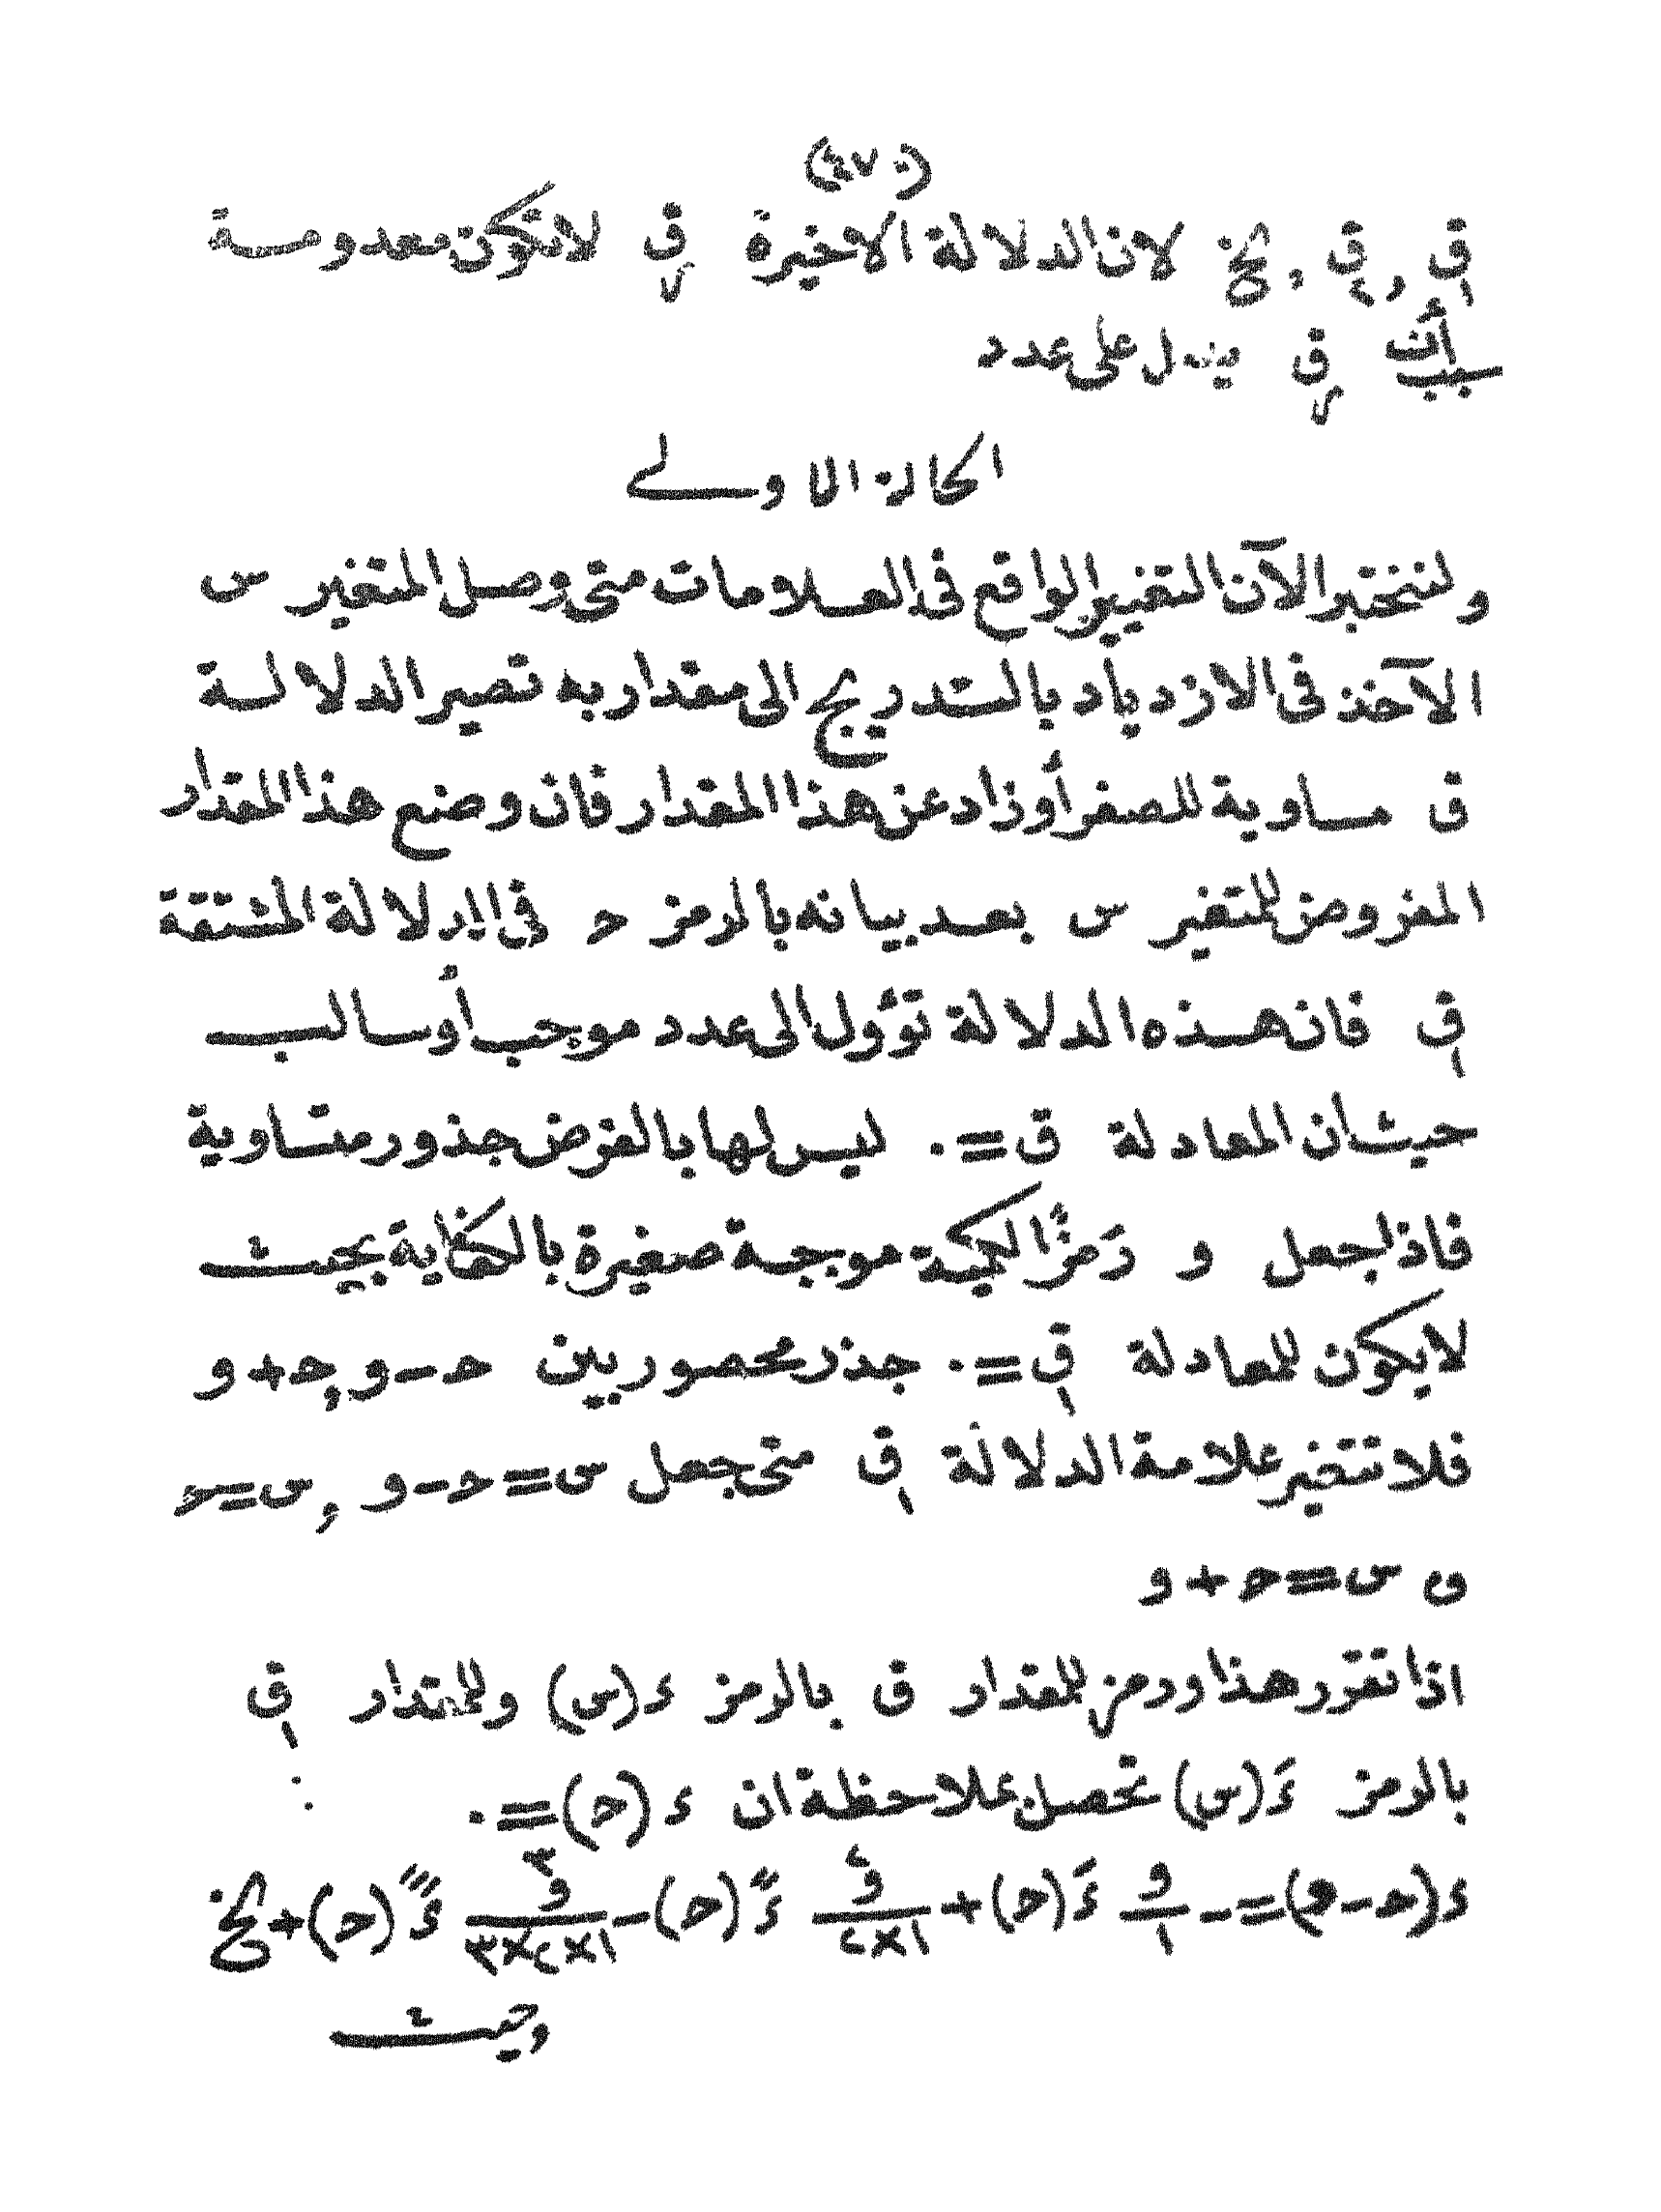 (٤٧٠)
ق١ , ق٢ , الخ لان الدلالة الاخيرة قر لا تكون معدومة
بسبب أن قر يدل على عدد
الحالة الاولى
ولنختبر الآن التغيير الواقع فى العلامات متى وصل المتغير س
الآخذ فى الازدياد بالتدريج الى مقدار به تصير الدلالة
ق مساوية للصفر أو زاد عن هذا المقدار فان وضع هذا المقدار
المفروض للمتغير س بعد بيانه بالرمز ح فى الدلالة المشتقة
ق١ فان هذه الدلالة تؤول الى عدد موجب أو سالب
حيث أن المعادلة ق = ٠ ليس لها بالفرض جذور متساوية
فاذا جعل و رَمزًا لكمية موجبة صغيرة بالكفاية بحيث
لا يكون للمعادلة ق١ = ٠ جذر محصور بين ح - و , ح + و
فلا تتغير علامة الدلالة ق١ متى جعل س = ح - و , س = ح
و س = ح + و
اذا تقرر هذا ورمز للمقدار ق بالرمز ء (س) وللمقدار ق١
بالرمز ءَ (س) تحصل بملاحظة ان ء (ح) = ٠ :
ء (ح - و) = - و/١ ءَ (ح) + و٢/١×٢ ءً (ح) - و٣/١×٢×٣ ءَََ (ح) + الخ
وحيث